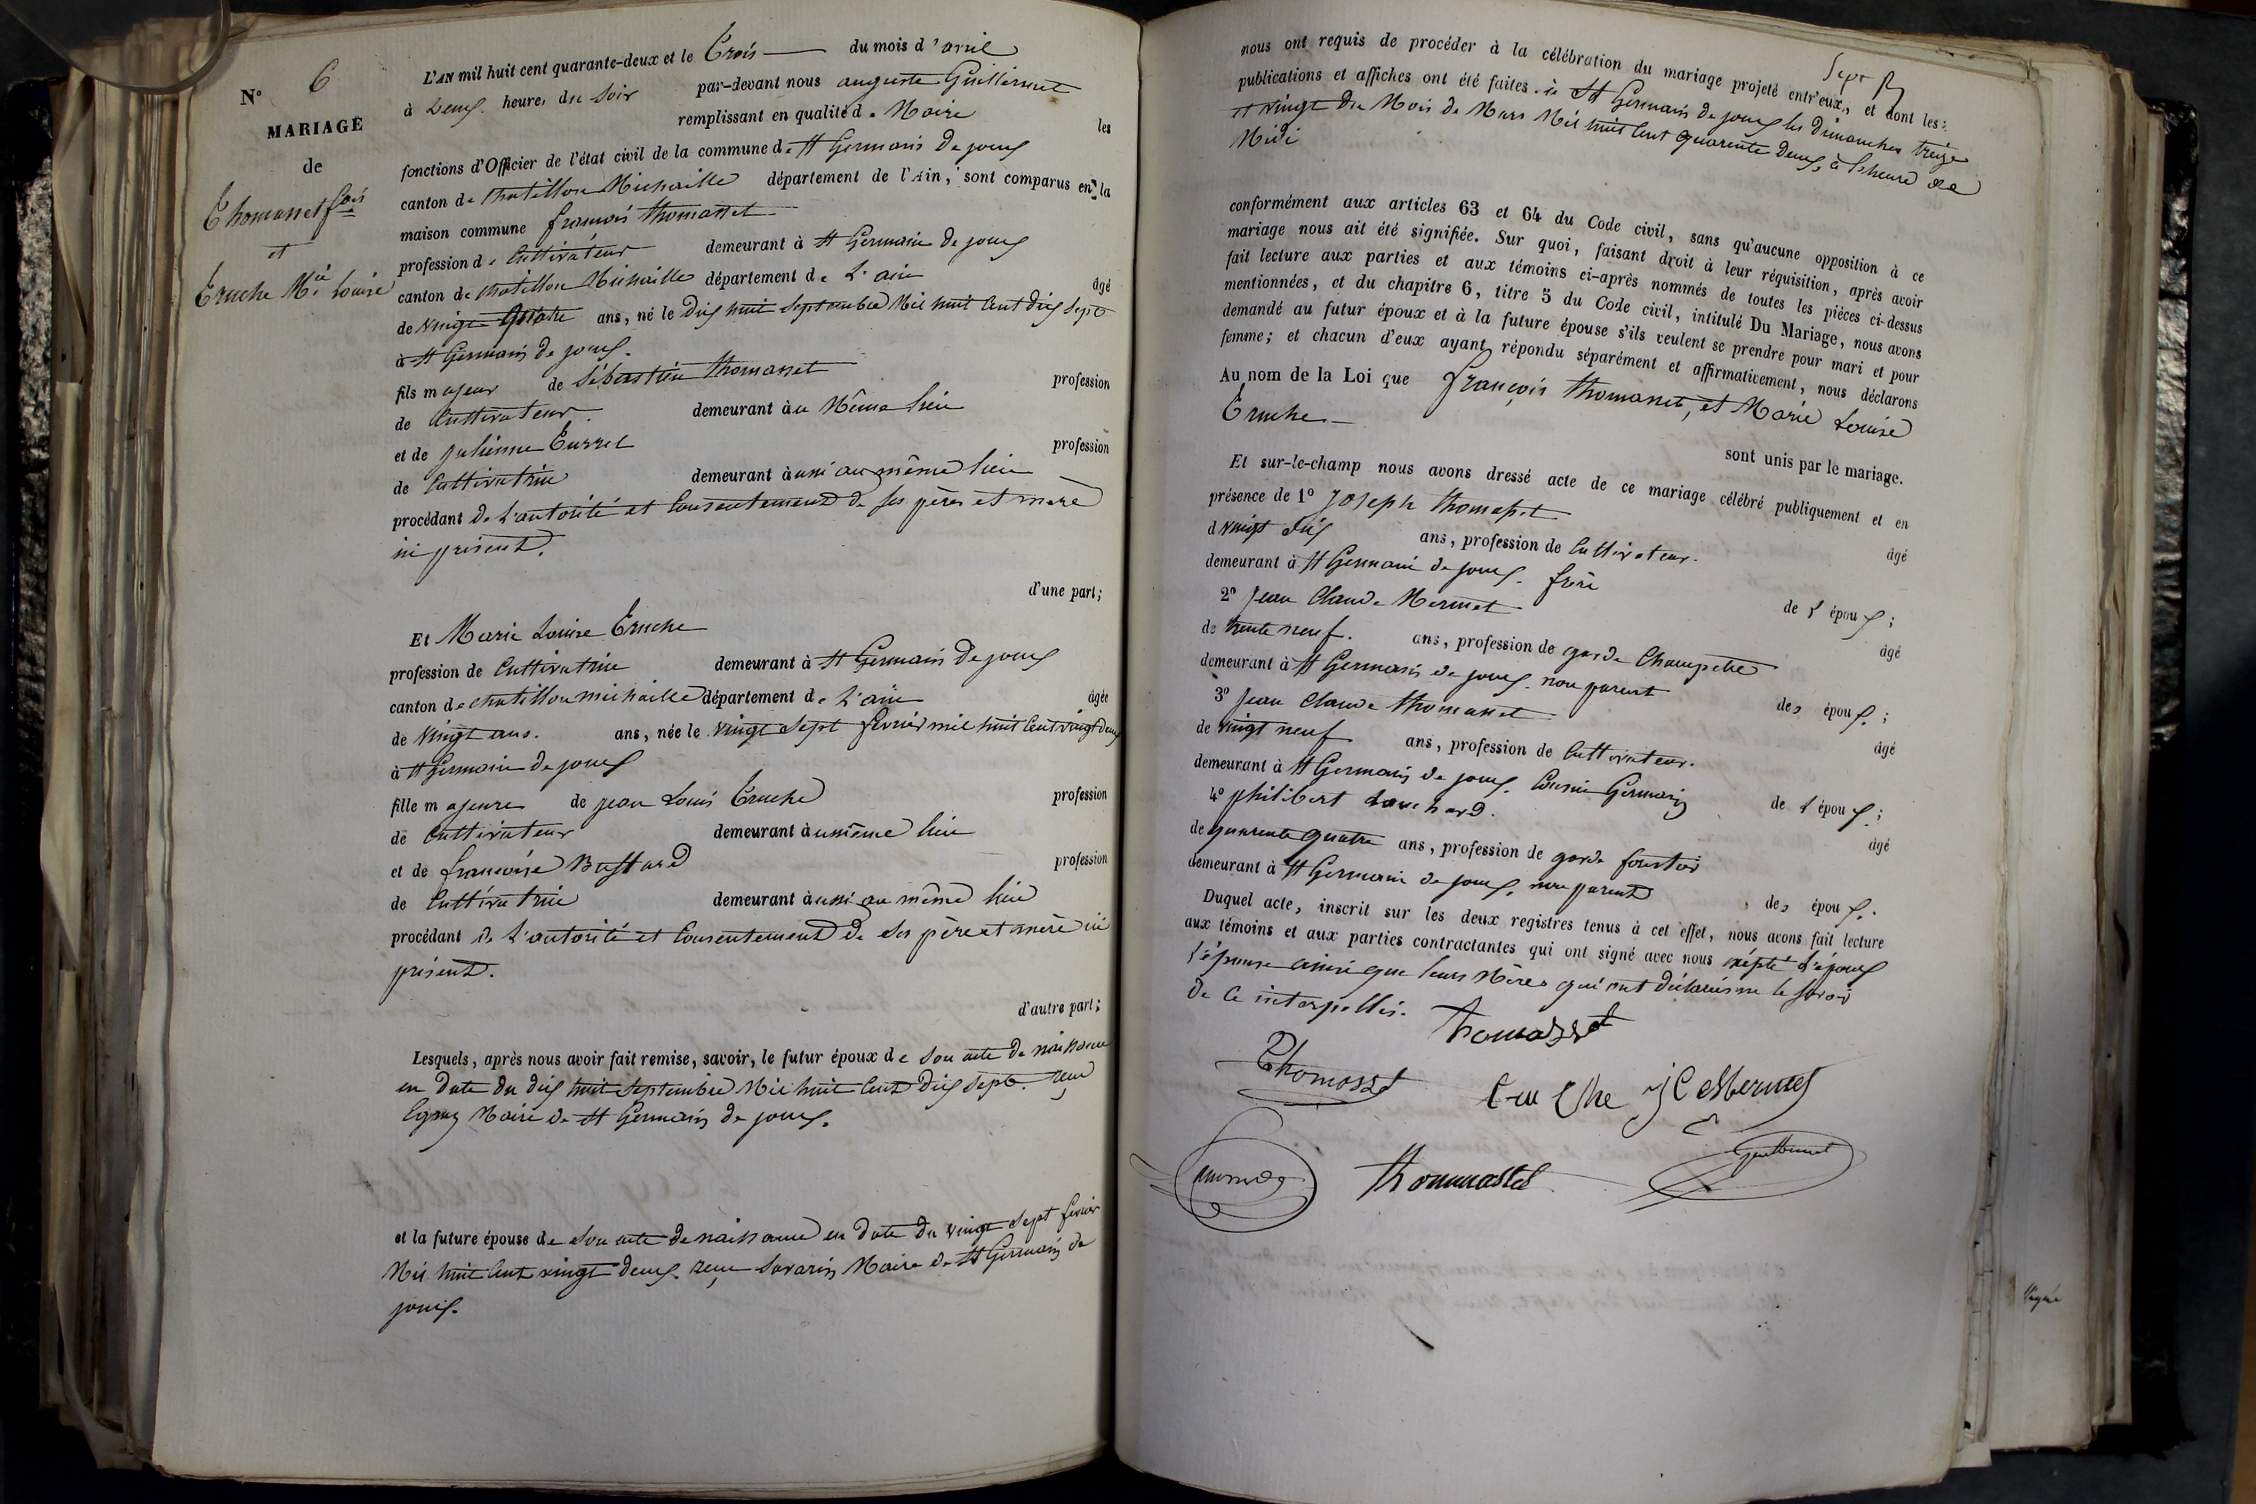 N° 6
MARIAGE
de
Thomasset fois
et
Truche Mie Louise
L'AN mil huit cent quarante-deux et le Trois du mois d'avril
à Deux heures du Soir par-devant nous auguste Guillermet
remplissant en qualité de Maire les
fonctions d'Officier de l'état civil de la commune de St Germain de joux
canton de Chatillon Michaille département de l'Ain, sont comparus en la
maison commune françois thomasset
profession de Cultivateur demeurant à St Germain de joux
canton de Chatillon Michaille département de L'ain âgé
de vingt quatre ans, né le Dix huit Septembre Mil huit Cent Dix Sept
à St Germain de joux.
fils majeur de Sébastien thomasset profession
de Cultivateur demeurant au Même Lieu
et de julienne Burret profession
de Cultivatrice demeurant aussi au même lieu
procédant de L'autorité et Consentement de ses pères et mère
ici présent.
d'une part;
Et Marie Louise Truche
profession de Cultivatrice demeurant à St Germain de joux
canton de chatillon michaille département de L'ain âgée
de vingt ans. ans, née le vingt sept fevrier mil huit Cent vingt deux
à St Germain de joux
fille majeure de jean Louis Truche profession
de Cultivateur demeurant au même lieu
et de françoise Bussard profession
de Cultivatrice demeurant aussi au même lieu
procédant de L'autorité et Consentement de ses père et mère ici
présent.
d'autre part;
Lesquels, après nous avoir fait remise, savoir, le futur époux de son acte de naissance
en Date du dix huit Septembre Mil huit Cent Dix Sept. reçu
Maire de St Germain de joux.
et la future épouse de son acte de naissance en Date du vingt sept fevrier
Mil huit Cent vingt deux. reçu Savarin Maire de St Germain de
joux.
Sept
nous ont requis de procéder à la célébration du mariage projeté entr'eux, et dont les
publications et affiches ont été faites à St Germain de joux les dimanches treize
et vingt du Mois de Mars Mil huit Cent quarante Deux, à l'heure de
Midi
conformément aux articles 63 et 64 du Code civil, sans qu'aucune opposition à ce
mariage nous ait été signifiée. Sur quoi, faisant droit à leur réquisition, après avoir
fait lecture aux parties et aux témoins ci-après nommés de toutes les pièces ci-dessus
mentionnées, et du chapitre 6, titre 5 du Code civil, intitulé Du Mariage, nous avons
demandé au futur époux et à la future épouse s'ils veulent se prendre pour mari et pour
femme; et chacun d'eux ayant répondu séparément et affirmativement, nous déclarons
Au nom de la Loi que françois thomasset, et Marie Louise
Truche
sont unis par le mariage.
Et sur-le-champ nous avons dressé acte de ce mariage célébré publiquement et en
présence de 1° Joseph thomasset âgé
d vingt dix ans, profession de Cultivateur.
demeurant à St Germain de joux. frère de l'époux;
2° Jean Claude Mermet âgé
de trente neuf. ans, profession de garde Champetre
demeurant à St Germain de joux. non parent des époux;
3° Jean Claude thomasset âgé
de vingt neuf ans, profession de Cultivateur.
demeurant à St Germain de joux. Cousin Germain de l'époux;
4° philibert âgé
de quarente quatre ans, profession de garde forestier
demeurant à St Germain de joux. non parent des époux.
Duquel acte, inscrit sur les deux registres tenus à cet effet, nous avons fait lecture
aux témoins et aux parties contractantes qui ont signé avec nous excepté L'époux
l'épouse ainsi que leurs Mères qui ont déclaré ne le savoir
de Ce interpellés.
Thomasset
Thomasset
truche JC Mermet
thommasset Guillermet